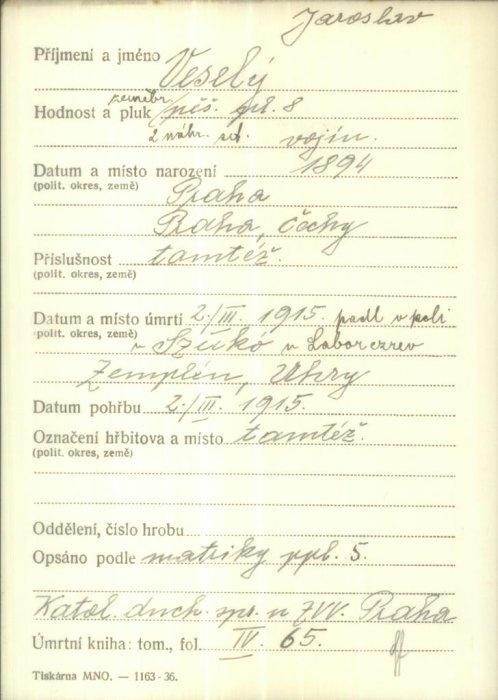 Jaroslav
Příjmení a jméno Veselý
zeměbr.
Hodnost a pluk pěš. pl. 8
2 náhr. set. vojín.
Datum a místo narození 1894
(polit. okres, země) Praha
Praha, Čechy
Příslušnost tamtéž.
(polit. okres, země)
Datum a místo úmrtí 2./III. 1915. padl v poli
(polit. okres, země) v Szukó u Laborczrev
Zemplén, Uhry
Datum pohřbu 2./III. 1915.
Označení hřbitova a místo tamtéž.
(polit. okres, země)
Oddělení, číslo hrobu
Opsáno podle matriky ppl. 5.
Katol. duch. spr. u ZVV. Praha
Úmrtní kniha: tom., fol. IV. 65.
Tiskárna MNO. — 1163-36.